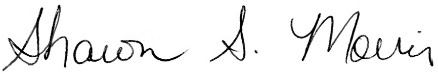 Sharon S. Morris